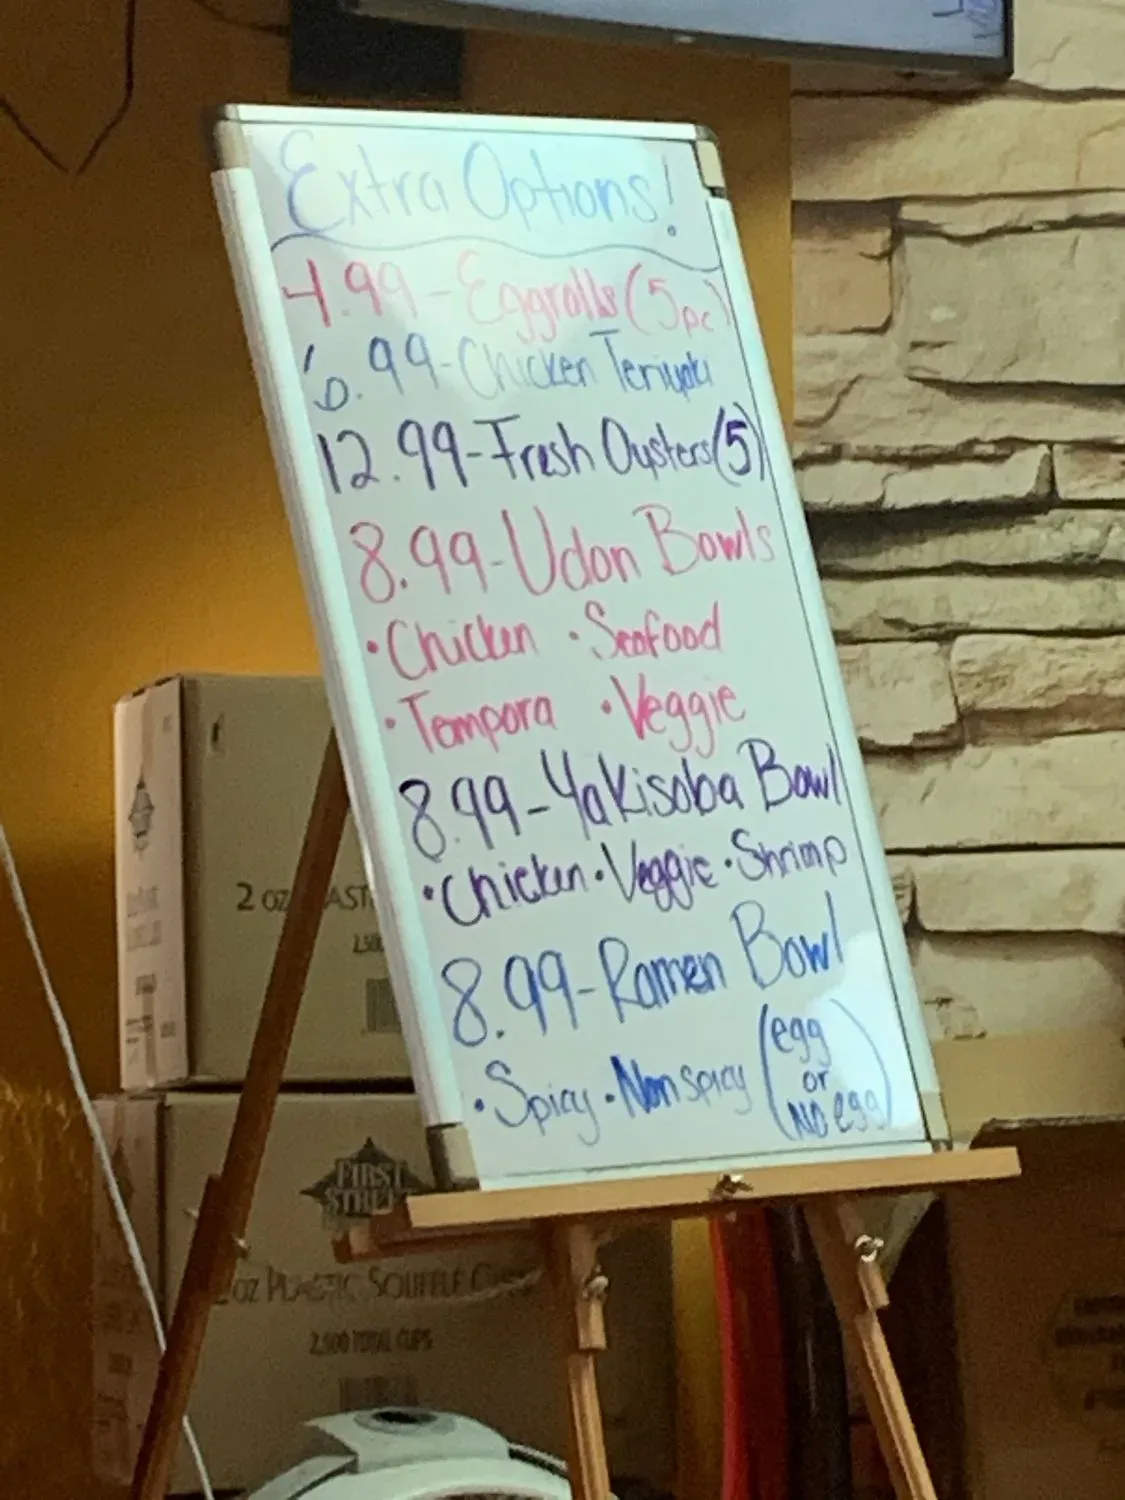 Extra Options!
4.99-Eggrolls (5pc)
6.99-Chicken Teriyaki
12.99-Fresh Oysters (5)
8.99-Udon Bowls
·Chicken ·Seafood
·Tempora ·Veggie
8.99-Yakisoba Bowl
·Chicken·Veggie·Shrimp
8.99-Ramen Bowl
·Spicy·Non spicy (egg
or
No egg)
2 oz
FIRST
STREET
oz PLASTIC SOUFFLE CUPS
2,500 TOTAL CUPS